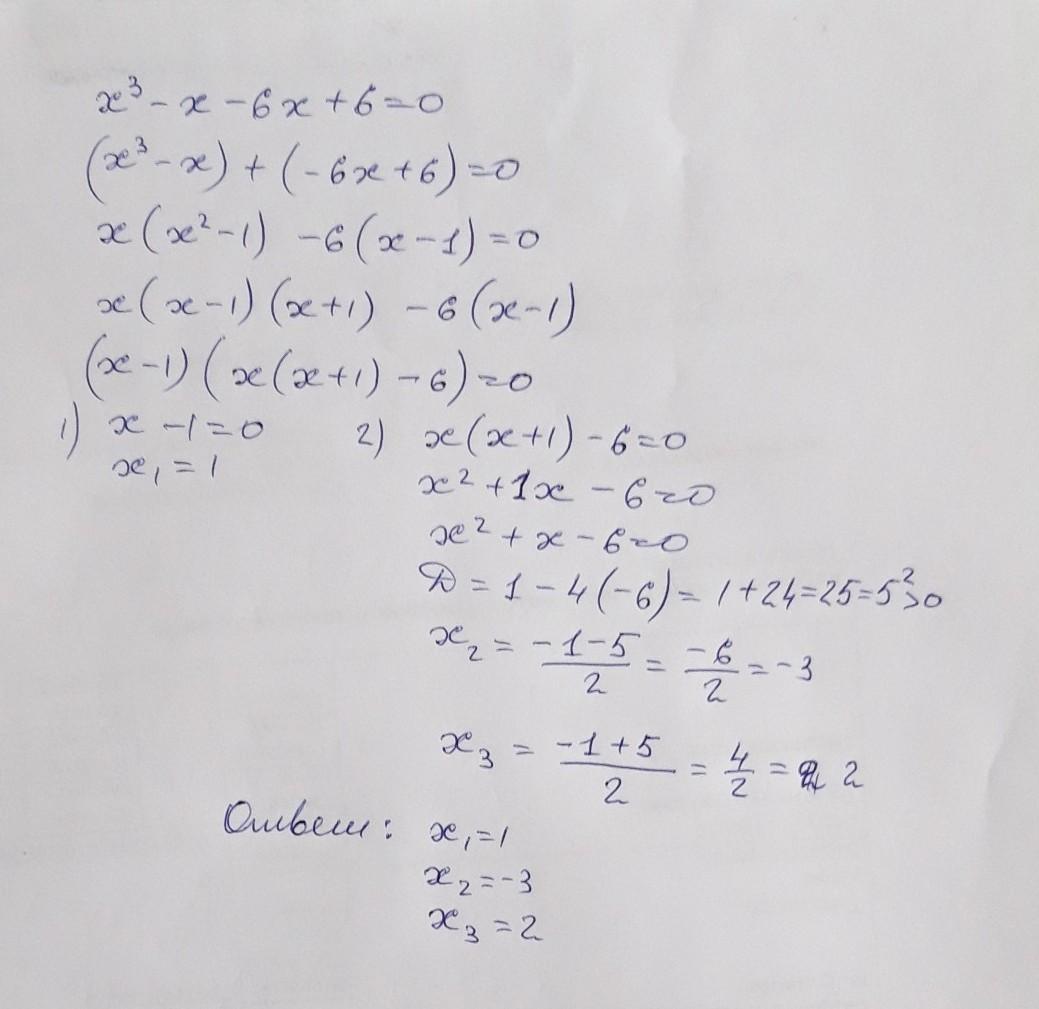 x³ - x - 6x + 6 = 0
(x³ - x) + (-6x + 6) = 0
x(x² - 1) - 6(x - 1) = 0
x(x - 1)(x + 1) - 6(x - 1)
(x - 1)(x(x + 1) - 6) = 0
1) x - 1 = 0
x₁ = 1
2) x(x + 1) - 6 = 0
x² + 1x - 6 = 0
x² + x - 6 = 0
D = 1 - 4(-6) = 1 + 24 = 25 = 5² > 0
x₂ = (-1 - 5)/2 = -6/2 = -3
x₃ = (-1 + 5)/2 = 4/2 = 2
Ответ: x₁ = 1
x₂ = -3
x₃ = 2